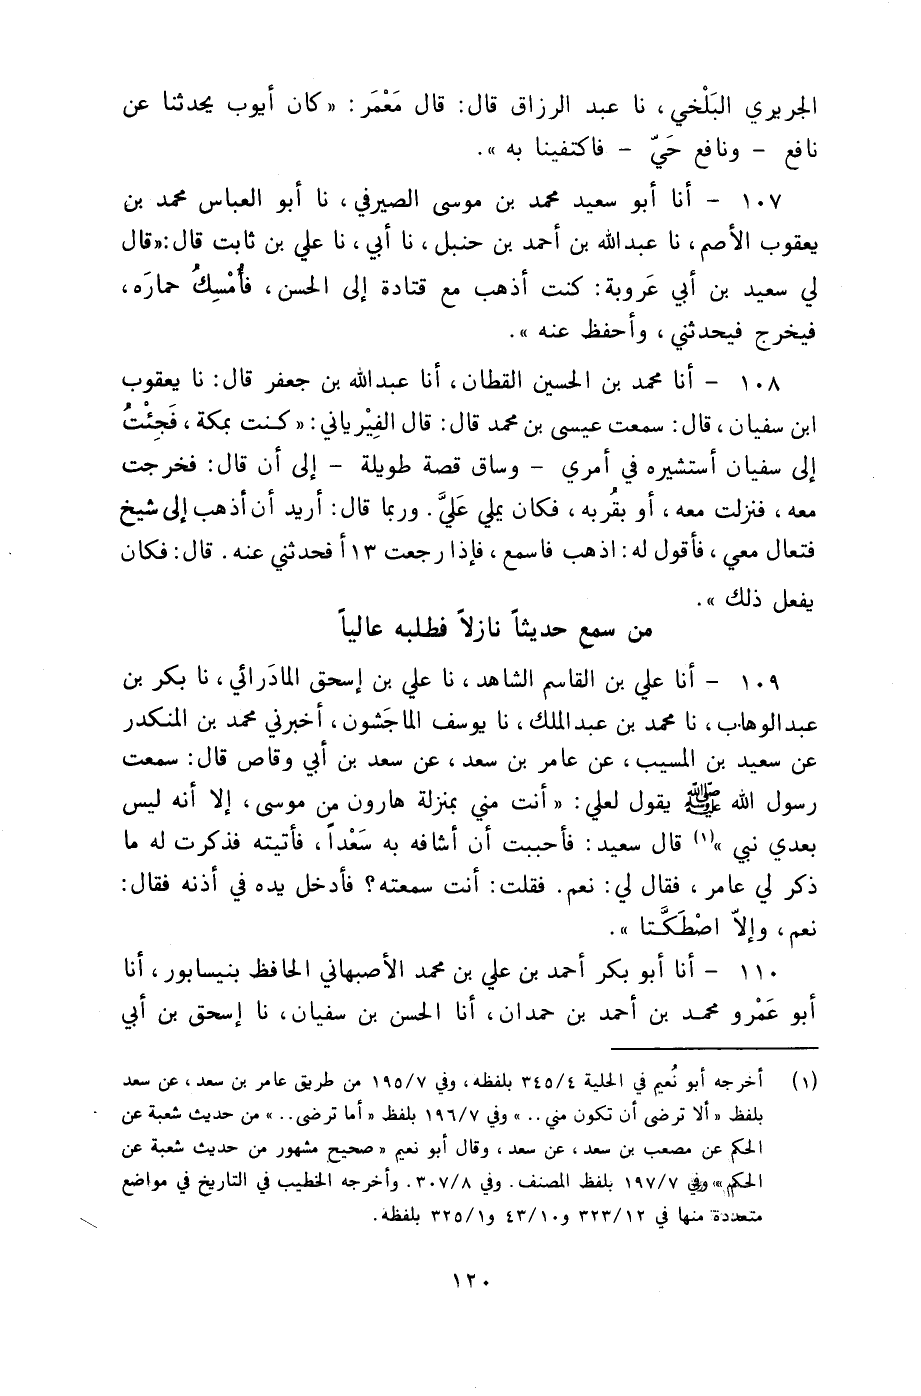 الجريري البَلْخي، نا عبد الرزاق قال: قال مَعْمَر: « كان أيوب يحدثنا عن
نافع - ونافع حَيّ - فاكتفينا به ».
١٠٧ - أنا أبو سعيد محمد بن موسى الصيرفي، نا أبو العباس محمد بن
يعقوب الأصم، نا عبدالله بن أحمد بن حنبل، نا أبي، نا علي بن ثابت قال:«قال
لي سعيد بن أبي عَروبة: كنت أذهب مع قتادة إلى الحسن، فأُمْسِكُ حمارَه،
فيخرج فيحدثني، وأحفظ عنه ».
١٠٨ - أنا محمد بن الحسين القطان، أنا عبدالله بن جعفر قال: نا يعقوب
ابن سفيان، قال: سمعت عيسى بن محمد قال: قال الفِيْرياني: « كنت بمكة، فَجِئْتُ
إلى سفيان أستشيره في أمري - وساق قصة طويلة - إلى أن قال: فخرجت
معه، فنزلت معه، أو بقُربه، فكان يملي عَليَّ. وربما قال: أريد أن أذهب إلى شيخ
فتعال معي، فأقول له: اذهب فاسمع، فإذا رجعت ١٣أ فحدثني عنه. قال: فكان
يفعل ذلك ».
من سمع حديثاً نازلاً فطلبه عالياً
١٠٩ - أنا علي بن القاسم الشاهد، نا علي بن إسحق المادَرائي، نا بكر بن
عبدالوهاب، نا محمد بن عبدالملك، نا يوسف الماجَشون، أخبرني محمد بن المنكدر
عن سعيد بن المسيب، عن عامر بن سعد، عن سعد بن أبي وقاص قال: سمعت
رسول الله ﷺ يقول لعلي: « أنت مني بمنزلة هارون من موسى، إلا أنه ليس
بعدي نبي »(١) قال سعيد: فأحببت أن أشافه به سَعْداً، فأتيته فذكرت له ما
ذكر لي عامر، فقال لي: نعم. فقلت: أنت سمعته؟ فأدخل يده في أذنه فقال:
نعم، وإلاّ اصْطَكَّتا ».
١١٠ - أنا أبو بكر أحمد بن علي بن محمد الأصبهاني الحافظ بنيسابور، أنا
أبو عَمْرو محمد بن أحمد بن حمدان، أنا الحسن بن سفيان، نا إسحق بن أبي
(١) أخرجه أبو نُعيم في الحلية ٣٤٥/٤ بلفظه، وفي ١٩٥/٧ من طريق عامر بن سعد، عن سعد
بلفظ « ألا ترضى أن تكون مني.. » وفي ١٩٦/٧ بلفظ « أما ترضى.. » من حديث شعبة عن
الحكم عن مصعب بن سعد، عن سعد، وقال أبو نعيم « صحيح مشهور من حديث شعبة عن
الحكم » وفي ١٩٧/٧ بلفظ المصنف. وفي ٣٠٧/٨. وأخرجه الخطيب في التاريخ في مواضع
متعددة منها في ٣٢٣/١٢ و٤٣/١٠ و٣٢٥/١ بلفظه.
١٢٠